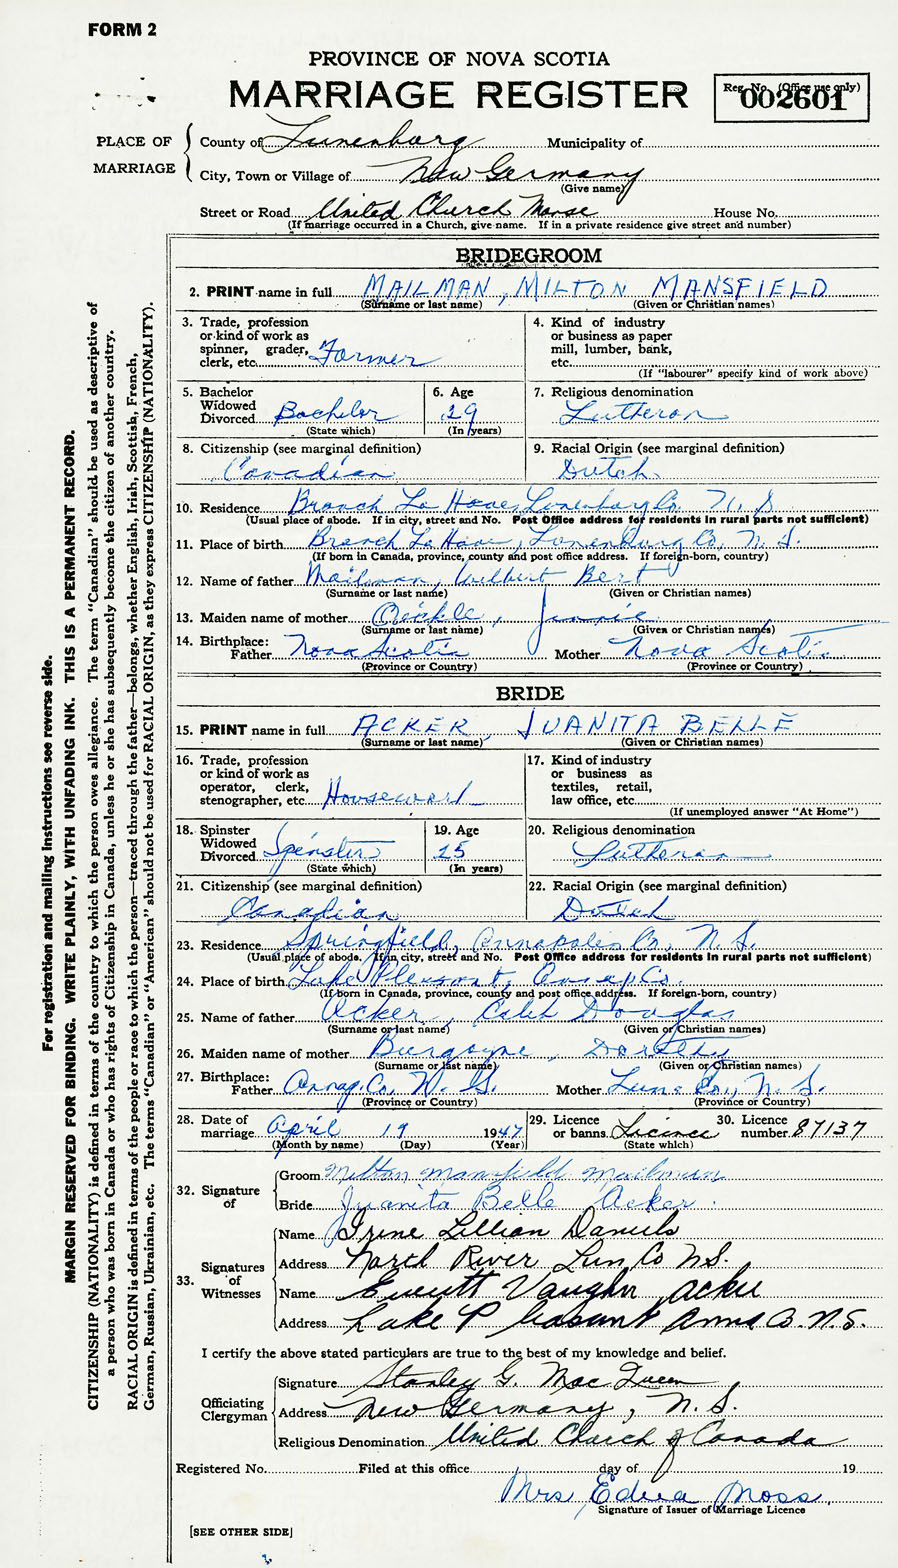 FORM 2
PROVINCE OF NOVA SCOTIA
MARRIAGE REGISTER
Reg. No. (Office use only)
002601
PLACE OF MARRIAGE
County of Lunenburg Municipality of
City, Town or Village of New Germany
(Give name)
Street or Road United Church Manse House No.
(If marriage occurred in a Church, give name. If in a private residence give street and number)
BRIDEGROOM
2. PRINT name in full MAILMAN, MILTON MANSFIELD
(Surname or last name) (Given or Christian names)
3. Trade, profession or kind of work as spinner, grader, clerk, etc. Farmer
4. Kind of industry or business as paper mill, lumber, bank, etc.
(If "labourer" specify kind of work above)
5. Bachelor Widowed Divorced Bachelor
(State which)
6. Age 29
(In years)
7. Religious denomination
Lutheran
8. Citizenship (see marginal definition)
Canadian
9. Racial Origin (see marginal definition)
Dutch
10. Residence Branch La Have, Lunenburg Co. N. S.
(Usual place of abode. If in city, street and No. Post Office address for residents in rural parts not sufficient)
11. Place of birth Branch La Have, Lunenburg Co, N. S.
(If born in Canada, province, county and post office address. If foreign-born, country)
12. Name of father Mailman, Wilbert Bert
(Surname or last name) (Given or Christian names)
13. Maiden name of mother Oickle, Junie
(Surname or last name) (Given or Christian names)
14. Birthplace:
Father Nova Scotia Mother Nova Scotia
(Province or Country) (Province or Country)
BRIDE
15. PRINT name in full ACKER, JUANITA BELLE
(Surname or last name) (Given or Christian names)
16. Trade, profession or kind of work as operator, clerk, stenographer, etc. Housework
17. Kind of industry or business as textiles, retail, law office, etc.
(If unemployed answer "At Home")
18. Spinster Widowed Divorced Spinster
(State which)
19. Age 25
(In years)
20. Religious denomination
Lutheran
21. Citizenship (see marginal definition)
Canadian
22. Racial Origin (see marginal definition)
Dutch
23. Residence Springfield, Annapolis Co, N. S.
(Usual place of abode. If in city, street and No. Post Office address for residents in rural parts not sufficient)
24. Place of birth Lake Pleasant, Annap Co.
(If born in Canada, province, county and post office address. If foreign-born, country)
25. Name of father Acker, Caleb Douglas
(Surname or last name) (Given or Christian names)
26. Maiden name of mother Burgoyne, Dorothy
(Surname or last name) (Given or Christian names)
27. Birthplace:
Father Annap. Co. N. S. Mother Lune Co., N. S.
(Province or Country) (Province or Country)
28. Date of marriage April 19 1947
(Month by name) (Day) (Year)
29. Licence or banns Licence
(State which)
30. Licence number 87137
32. Signature of
Groom Milton Mansfield Mailman
Bride Juanita Belle Acker.
33. Signatures of Witnesses
Name Irene Lillian Daniels
Address North River Lun Co N.S.
Name Everett Vaughn Acker
Address Lake Pleasant Anna Co. N.S.
I certify the above stated particulars are true to the best of my knowledge and belief.
Officiating Clergyman
Signature Stanley G. MacQueen
Address New Germany, N. S.
Religious Denomination United Church of Canada
Registered No. Filed at this office day of 19
Mrs Edna Moss
Signature of Issuer of Marriage Licence
[SEE OTHER SIDE]
For registration and mailing instructions see reverse side.
MARGIN RESERVED FOR BINDING. WRITE PLAINLY, WITH UNFADING INK. THIS IS A PERMANENT RECORD.
CITIZENSHIP (NATIONALITY) is defined in terms of the country to which the person owes allegiance. The term "Canadian" should be used as descriptive of
a person who was born in Canada or who has rights of Citizenship in Canada, unless he or she has subsequently become the citizen of another country.
RACIAL ORIGIN is defined in terms of the people or race to which the person—traced through the father—belongs, whether English, Irish, Scottish, French,
German, Russian, Ukrainian, etc. The terms "Canadian" or "American" should not be used for RACIAL ORIGIN, as they express CITIZENSHIP (NATIONALITY).